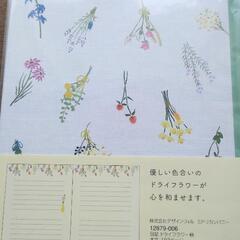 優しい色合いの
ドライフラワーが
心を和ませます。
株式会社デザインフィル ミドリカンパニー
12879-006
日記 ドライフラワー柄